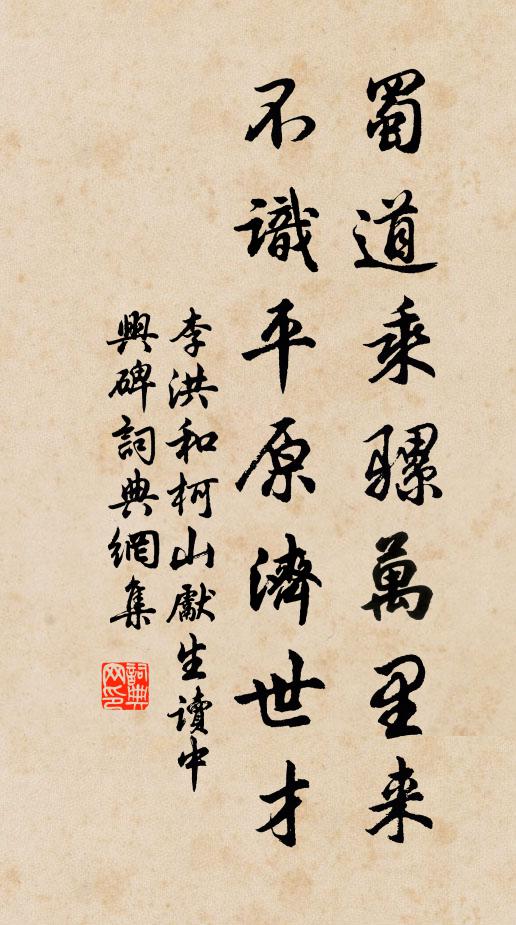 蜀道乘騾萬里来
不識平原濟世才
李洪和柯山獻生讀中
興碑詞典網集
詞典網印